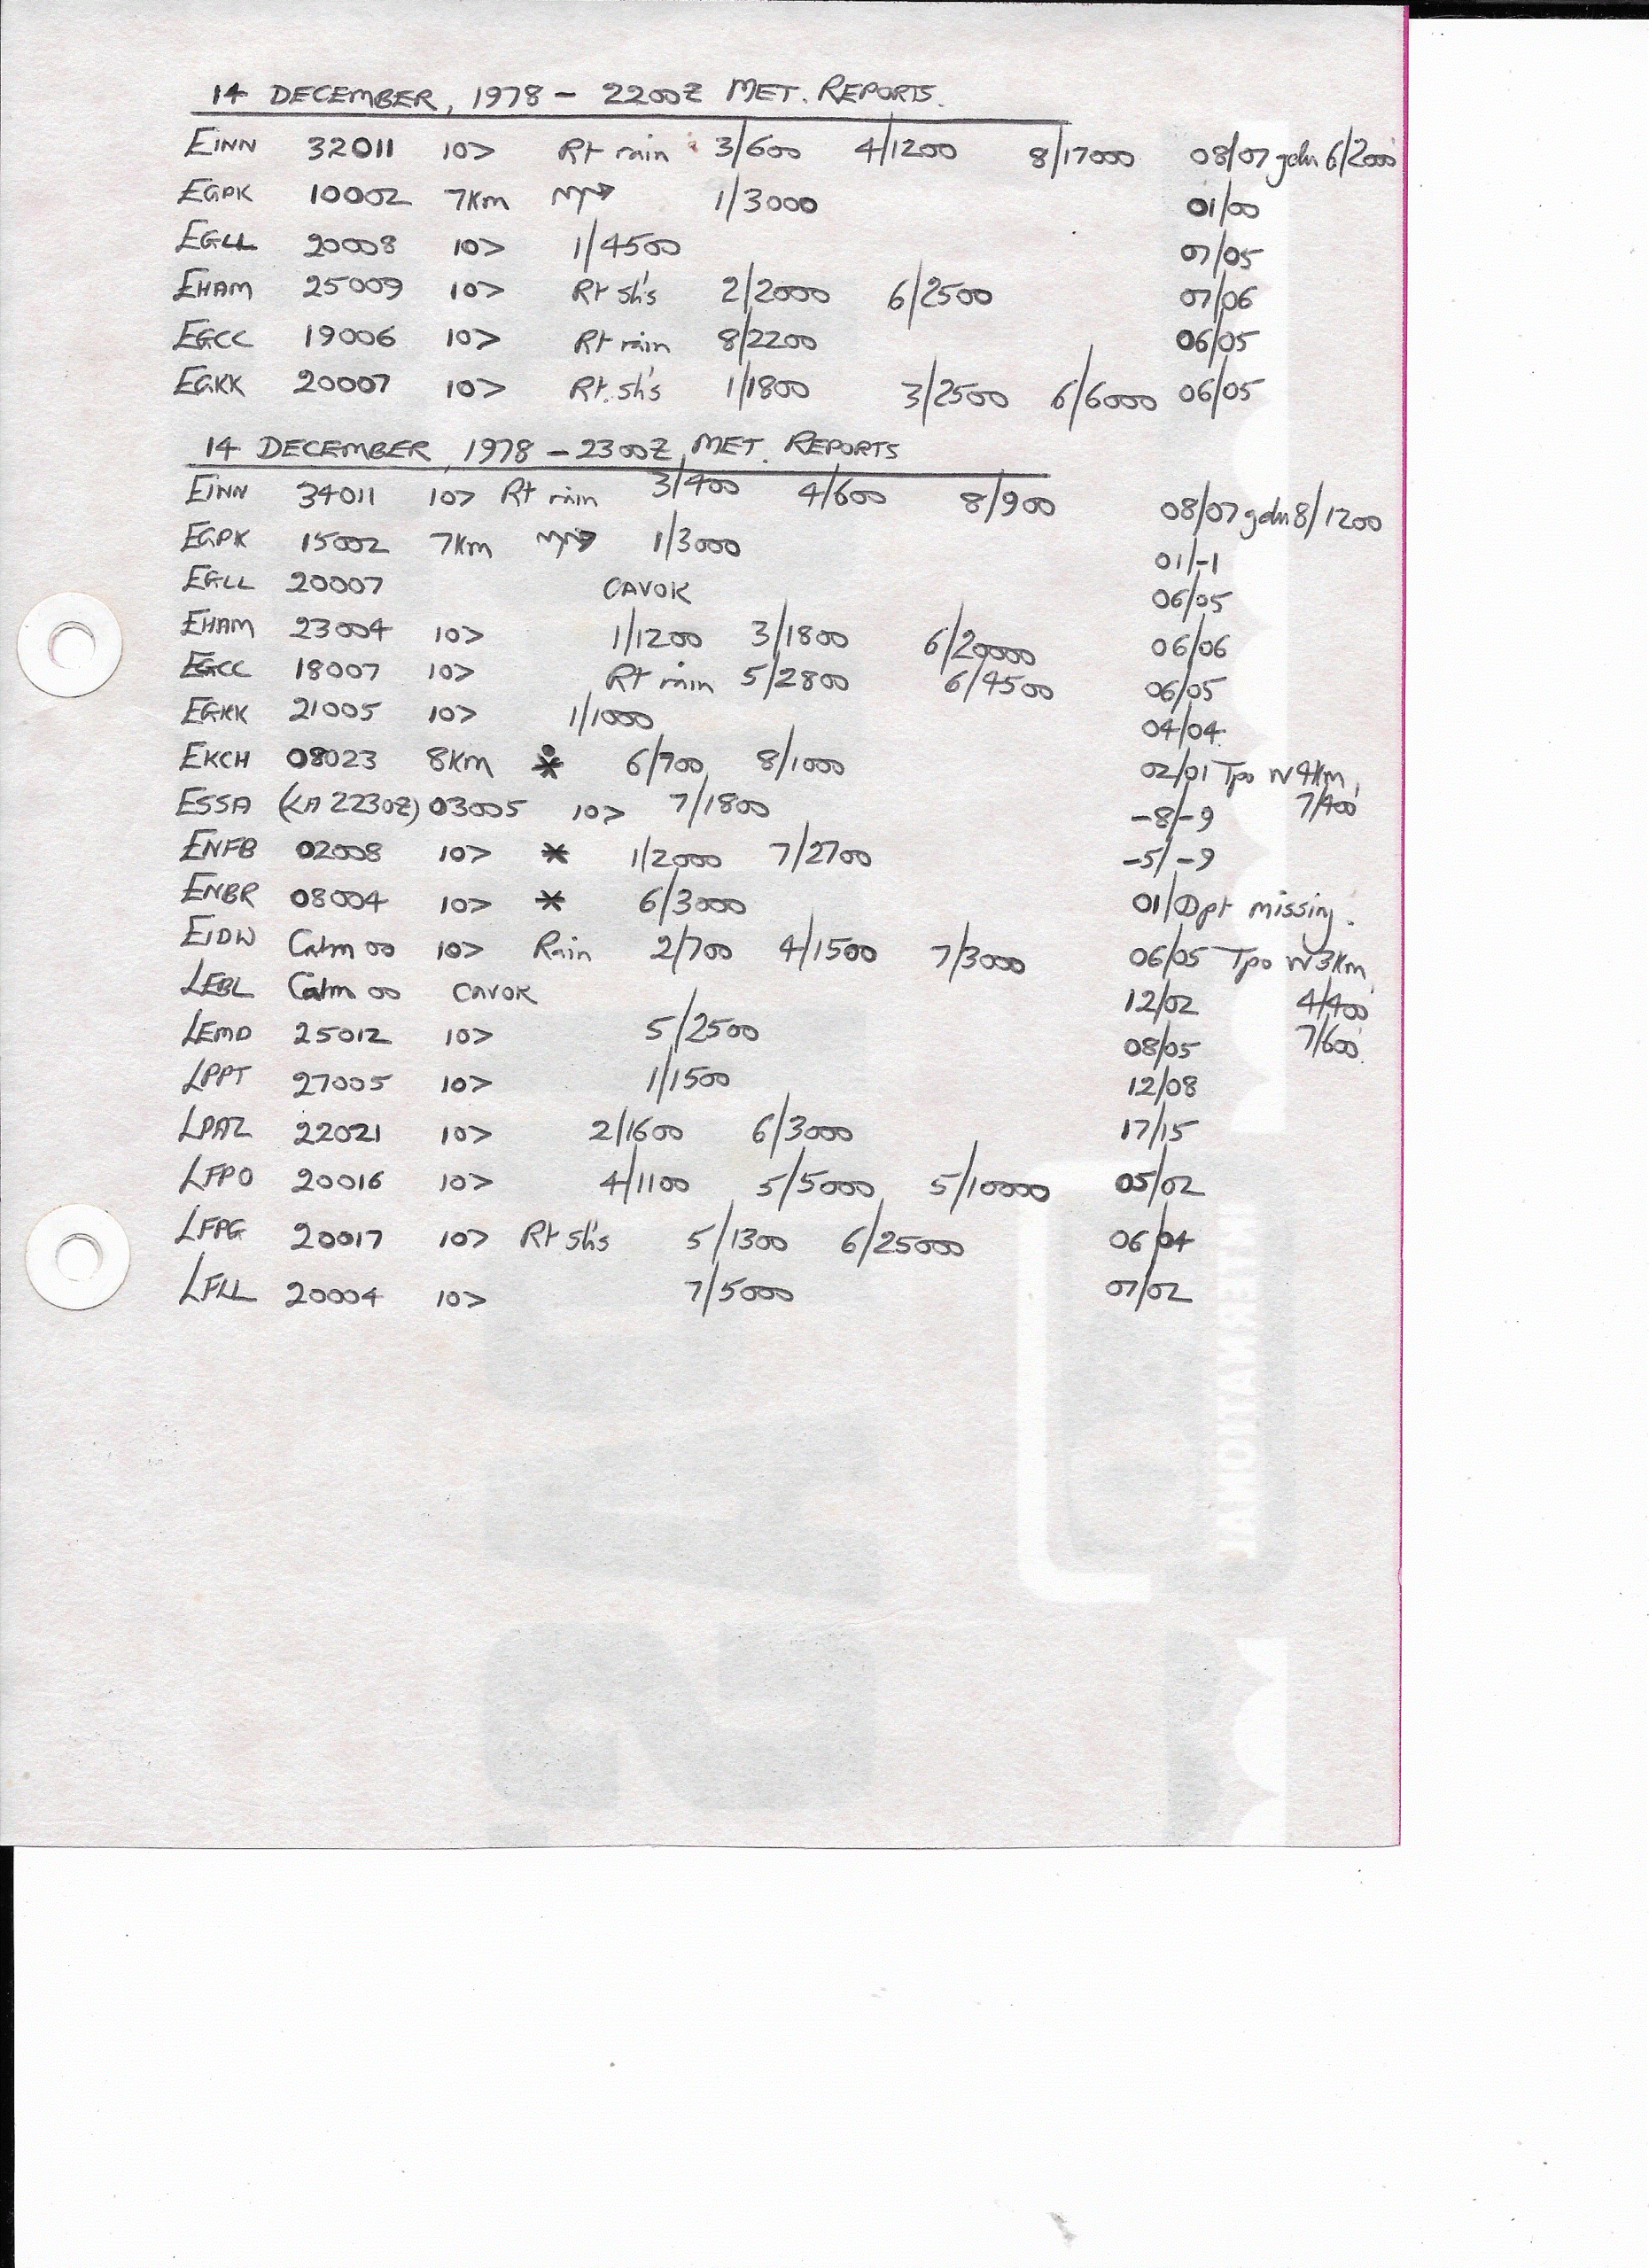 14 DECEMBER, 1978 - 2200Z MET. REPORTS.
EINN 32011 10> Rt rain 3/600 4/1200 8/17000 08/07 gdn 6/2000
EGPK 10002 7Km 1/3000 01/00
EGLL 20008 10> 1/4500 07/05
EHAM 25009 10> Rt sh's 2/2000 6/2500 07/06
EGCC 19006 10> Rt rain 8/2200 06/05
EGKK 20007 10> Rt. sh's 1/1800 3/2500 6/6000 06/05
14 DECEMBER, 1978 - 2300Z MET. REPORTS
EINN 34011 10> Rt rain 3/400 4/600 8/900 08/07 gdn 8/1200
EGPK 15002 7Km 1/3000 01/-1
EGLL 20007 CAVOK 06/05
EHAM 23004 10> 1/1200 3/1800 6/20000 06/06
EGCC 18007 10> Rt rain 5/2800 6/4500 06/05
EGKK 21005 10> 1/1000 04/04
EKCH 08023 8Km * 6/700 8/1000 02/01 Tpo W 4Km,
7/400
ESSA (LA 2230Z) 03005 10> 7/1800 -8/-9
ENFB 02008 10> * 1/2000 7/2700 -5/-9
ENBR 08004 10> * 6/3000 01/Dpt missing.
EIDW Calm 00 10> Rain 2/700 4/1500 7/3000 06/05 Tpo W 3Km,
4/400
7/600
LEBL Calm 00 CAVOK 12/02
LEMD 25012 10> 5/2500 08/05
LPPT 27005 10> 1/1500 12/08
LPAZ 22021 10> 2/1600 6/3000 17/15
LFPO 20016 10> 4/1100 5/5000 5/10000 05/02
LFPG 20017 10> Rt sh's 5/1300 6/25000 06/04
LFLL 20004 10> 7/5000 07/02
INTERNATIONAL